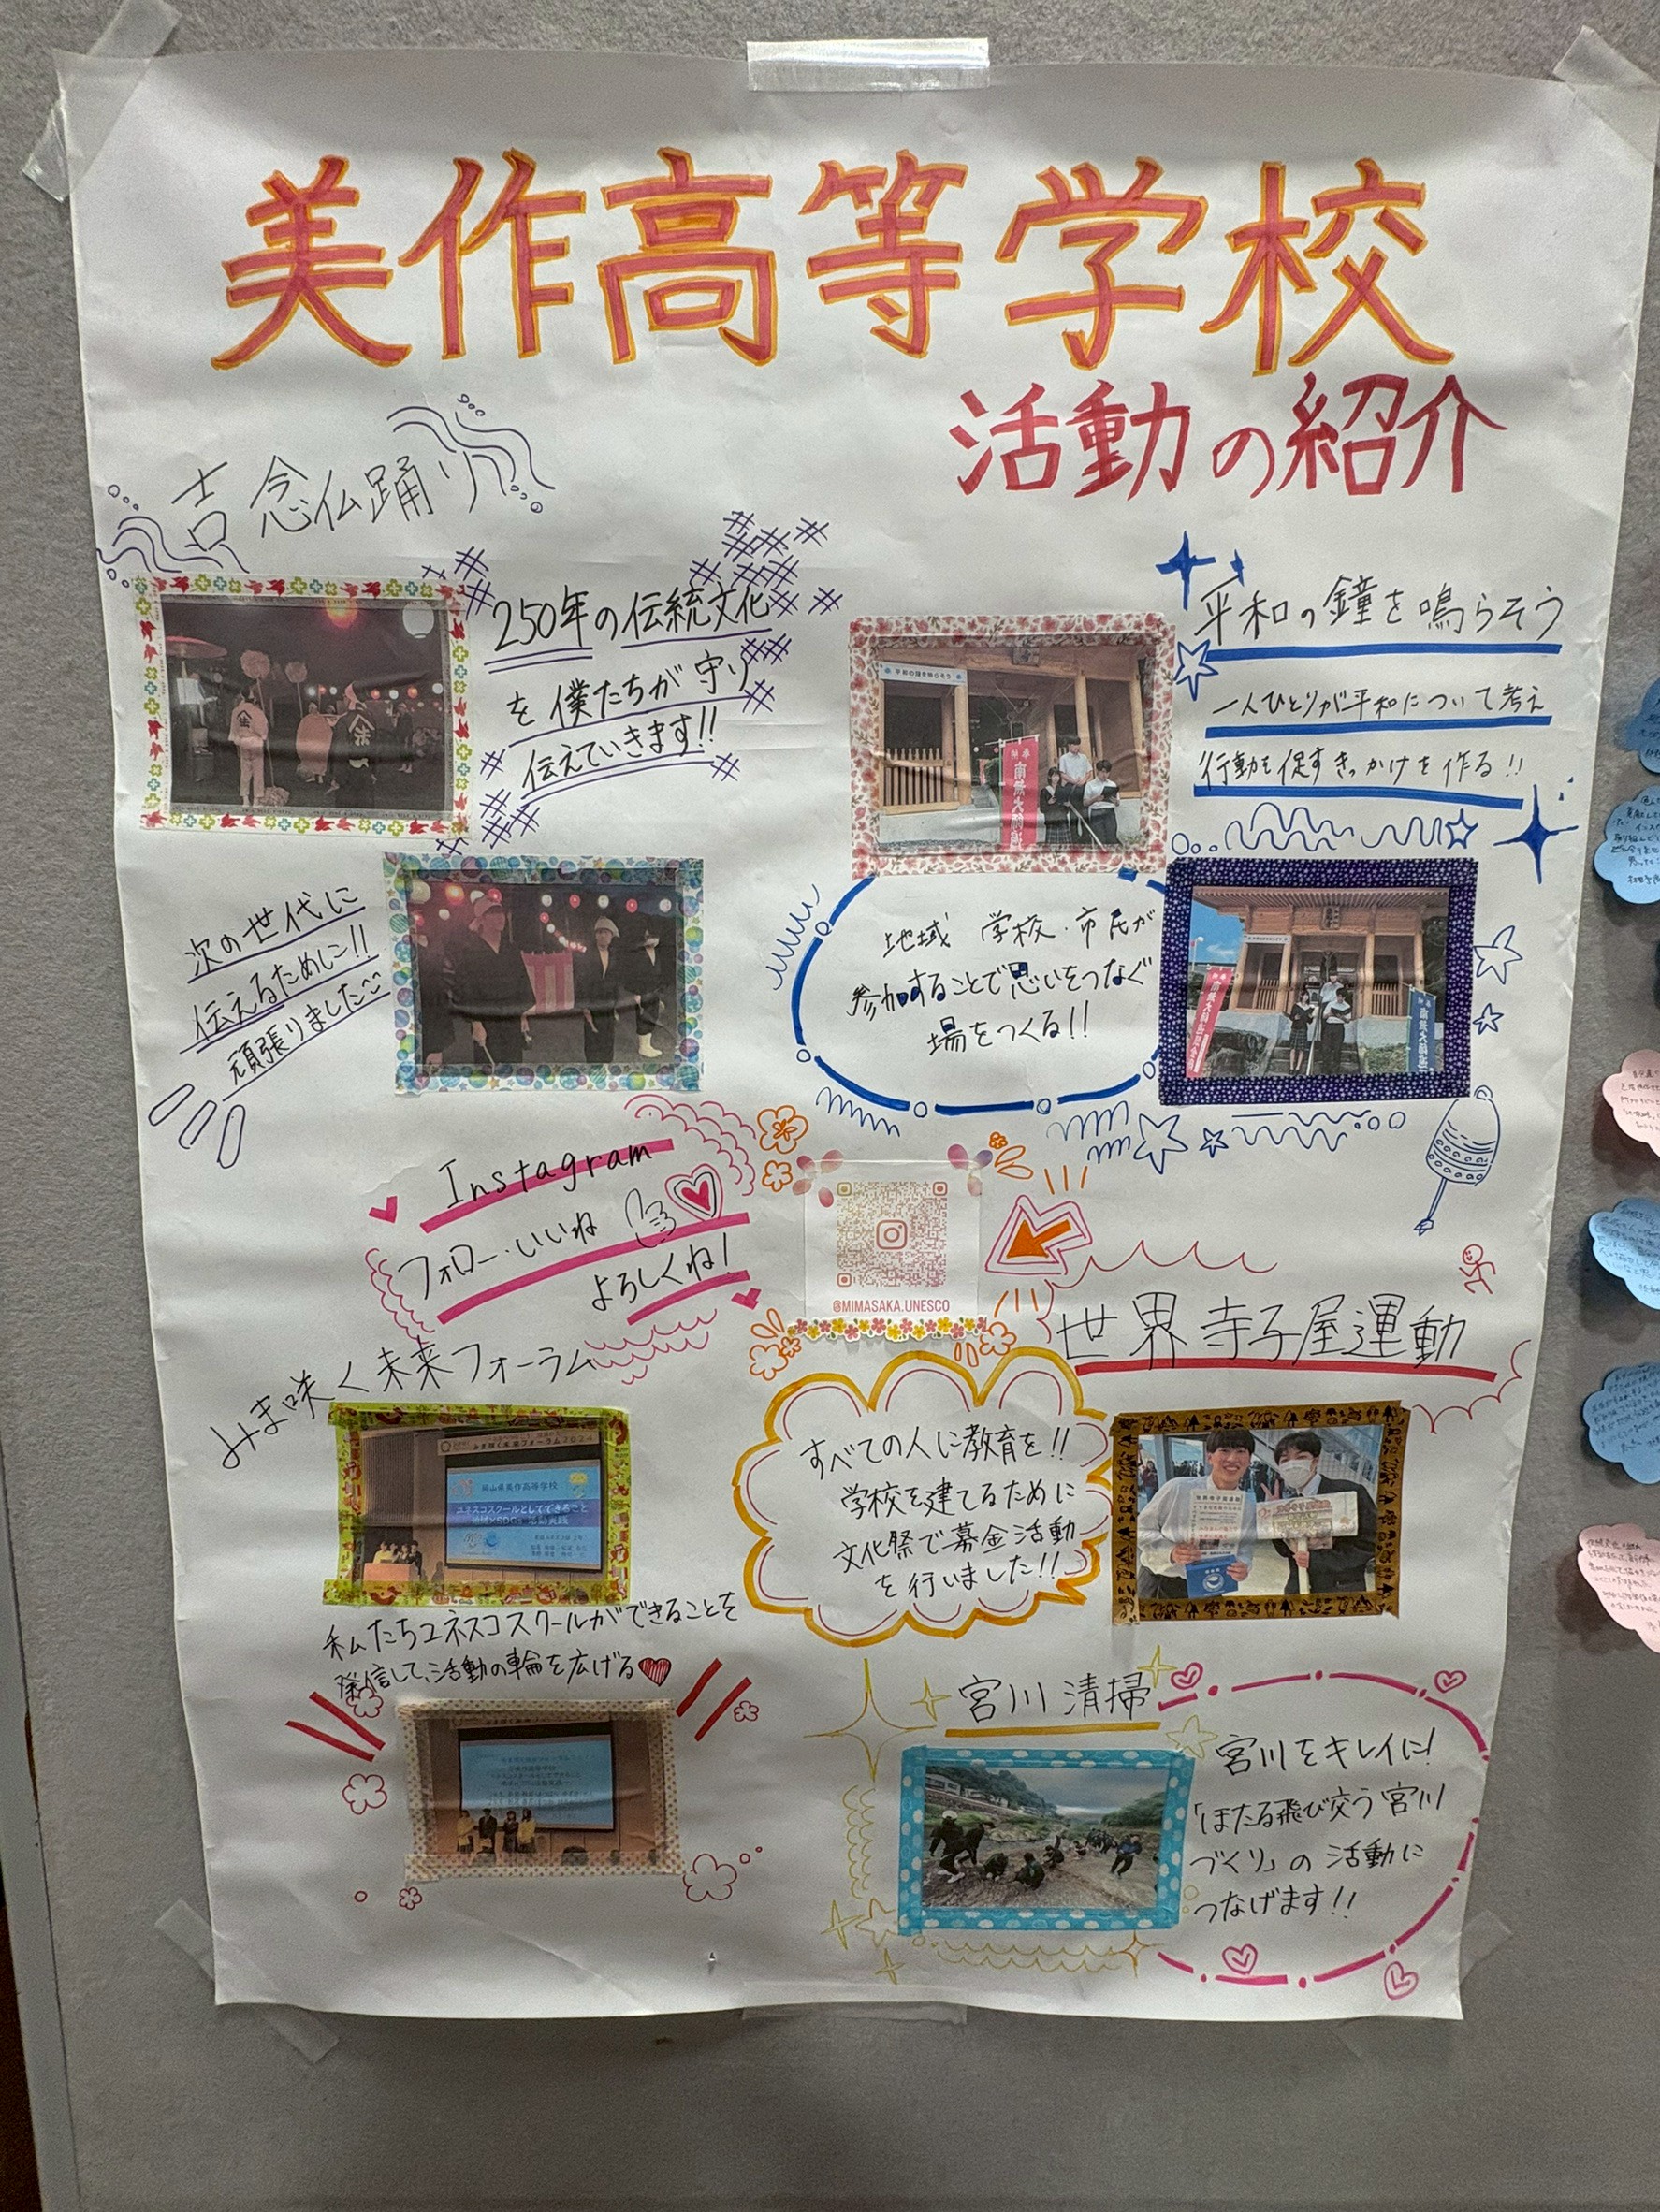 美作高等学校
活動の紹介
吉念仏踊り
250年の伝統文化
を僕たちが守り
伝えていきます!!
次の世代に
伝えるために!!
頑張りました
平和の鐘を鳴らそう
一人ひとりが平和について考え
行動を促すきっかけを作る!!
平和の鐘を鳴らそう
地域 学校・市民が
参加することで思いをつなぐ
場をつくる!!
Instagram
フォロー・いいね
よろしくね!
@MIMASAKA.UNESCO
みま咲く未来フォーラム
みま咲く未来フォーラム2024
岡山県美作高等学校
ユネスコスクールとしてできること
地域×SDGs 活動実践
私たちユネスコスクールができることを
発信して、活動の輪を広げる
世界寺子屋運動
すべての人に教育を!!
学校を建てるために
文化祭で募金活動
を行いました!!
宮川清掃
宮川をキレイに!
「ほたる飛び交う宮川
づくり」の活動に
つなげます!!